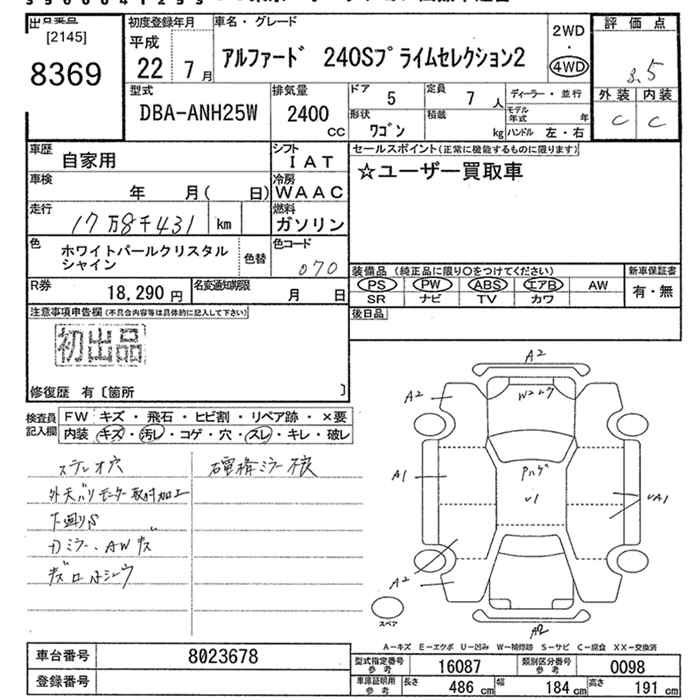 出品番号
[2145]
8369
初度登録年月
平成
22 7月
車名・グレード
アルファード 240Sプライムセレクション2
2WD
・
4WD
評価点
3.5
外装 内装
C C
型式
DBA-ANH25W
排気量
2400
CC
ドア
5
定員
7人
形状
ワゴン
積載
kg
ディーラー・並行
モデル年式 年
ハンドル 左・右
車歴
自家用
シフト
IAT
車検
年 月( 日)
冷房
WAAC
走行
17万8千431 km
燃料
ガソリン
色
ホワイトパールクリスタル
シャイン
色替
色コード
070
R券
18,290円
名変通知期限
月 日
セールスポイント(正常に機能するものに限ります)
☆ユーザー買取車
装備品 (純正品に限り○をつけてください)
新車保証書
PS PW ABS エアB AW
有・無
SR ナビ TV カワ
後日品
注意事項申告欄(不具合内容等は具体的に記入して下さい)
初出品
修復歴 有〔箇所 〕
検査員
記入欄
FW キズ・飛石・ヒビ割・リペア跡・×要
内装 キズ・汚レ・コゲ・穴・スレ・キレ・破レ
ステレオ穴
外天バリモーター取付加工
下廻りS
A2
A2
W2
A1
P
U1
UA1
A2
A2
スペア
A-キズ E-エクボ U-凹み W-補修跡 S-サビ C-腐食 XX-交換済
車台番号
8023678
登録番号
型式指定番号
参考
16087
類別区分番号
参考
0098
車庫証明用
参考
長さ 486 cm 幅 184 cm 高さ 191 cm